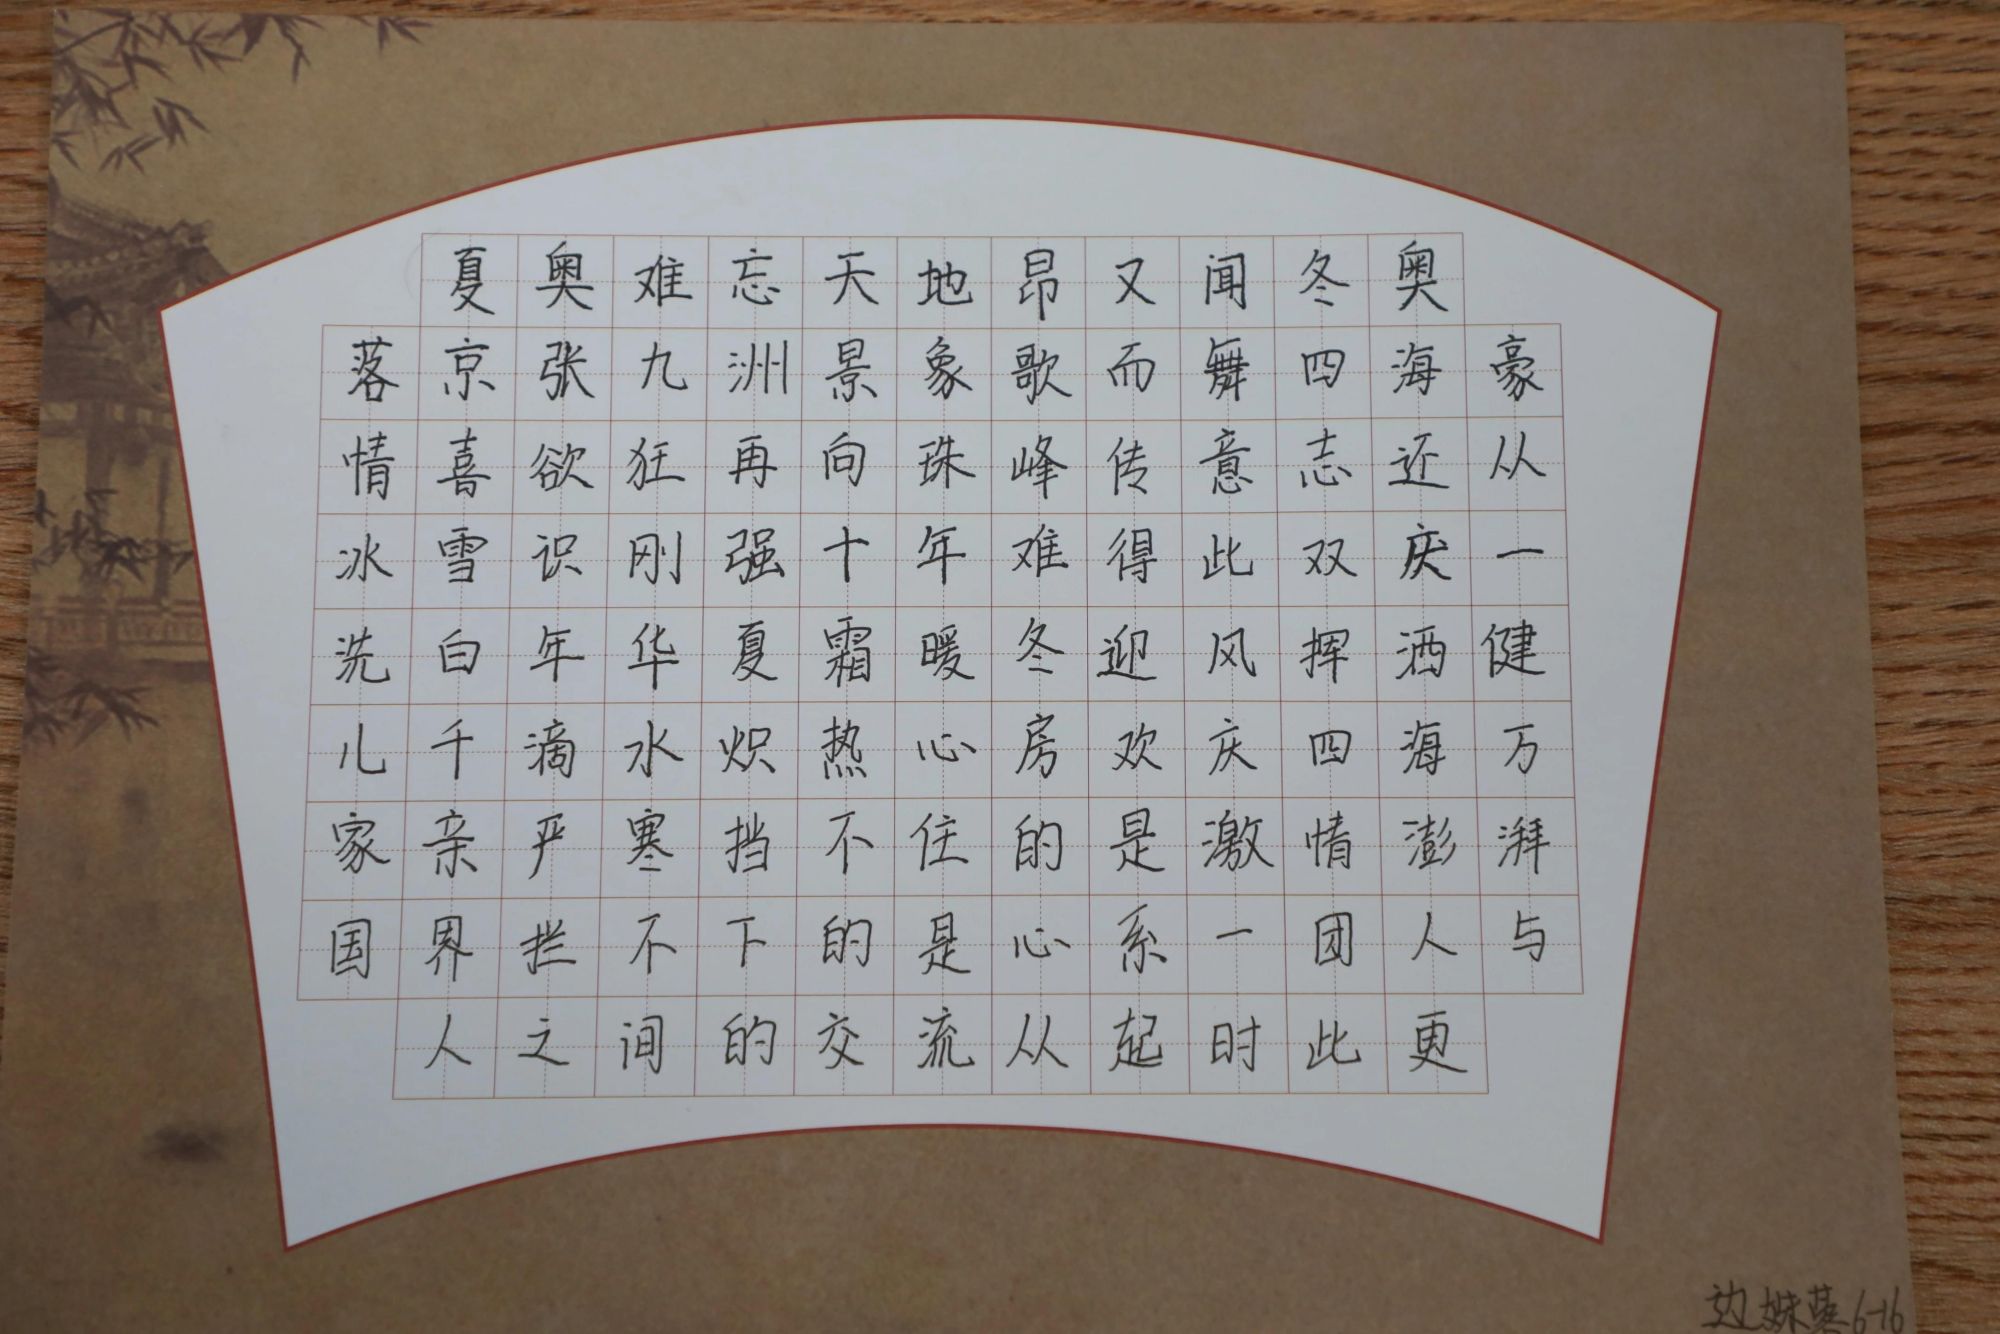 夏奥难忘天地昂又闻冬奥
落京张九洲景象歌而舞四海豪
情喜欲狂再向珠峰传意志还从
冰雪识刚强十年难得此双庆一
洗白年华夏霜暖冬迎风挥洒健
儿千滴水炽热心房欢庆四海万
家亲严寒挡不住的是激情澎湃
国界拦不下的是心系一团人与
人之间的交流从起时此更
6-16